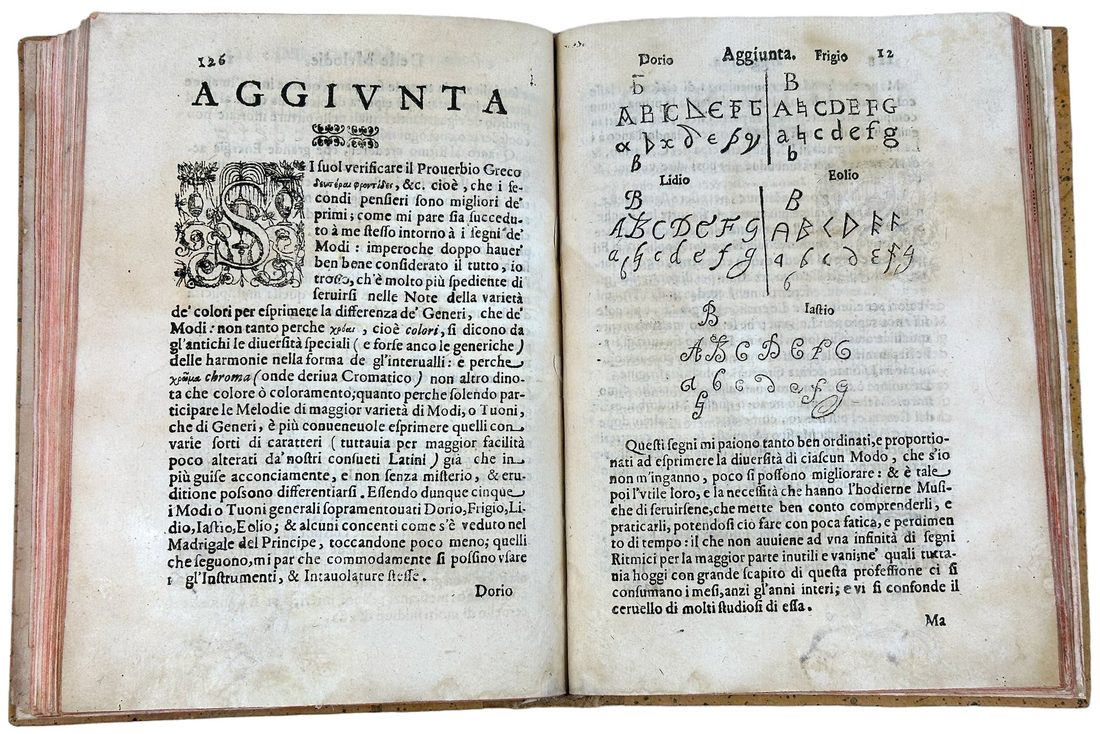 126
AGGIVNTA
SI suol verificare il Prouerbio Greco
δευτέραι φροντίδες, &c. cioè, che i se-
condi pensieri sono migliori de'
primi; come mi pare sia succedu-
to à me stesso intorno à i segni de'
Modi: imperoche doppo hauer
ben bene considerato il tutto, io
trouo, ch'è molto più spediente di
seruirsi nelle Note della varietà
de' colori per esprimere la differenza de' Generi, che de'
Modi: non tanto perche χρόαι, cioè colori, si dicono da
gl'antichi le diuersità speciali (e forse anco le generiche)
delle harmonie nella forma de gl'interualli: e perche
χρῶμα chroma (onde deriua Cromatico) non altro dino-
ta che colore ò coloramento; quanto perche solendo par-
ticipare le Melodie di maggior varietà di Modi, o Tuoni,
che di Generi, è più conueneuole esprimere quelli con
varie sorti di caratteri (tuttauia per maggior facilità
poco alterati da' nostri consueti Latini) già che in
più guise acconciamente, e non senza misterio, & eru-
ditione possono differentiarsi. Essendo dunque cinque
i Modi o Tuoni generali sopramentouati Dorio, Frigio, Li-
dio, Iastio, Eolio; & alcuni concenti come s'è veduto nel
Madrigale del Principe, toccandone poco meno; quelli
che seguono, mi par che commodamente si possino vsare
gl'Instrumenti, & Intauolature stesse.
Dorio
Dorio Aggiunta. Frigio 12
B
A B C D E F G
a b c d e f g
b
Lidio Eolio
B B
A B C D E F G A B C D
a b c d e f g a b c d e f g
b
Iastio
B
A B C D E F G
a b c d e f g
Questi segni mi paiono tanto ben ordinati, e proportio-
nati ad esprimere la diuersità di ciascun Modo, che s'io
non m'inganno, poco si possono migliorare: & è tale
poi l'vtile loro, e la necessità che hanno l'hodierne Musi-
che di seruirsene, che mette ben conto comprenderli, e
praticarli, potendosi ciò fare con poca fatica, e perdimen-
to di tempo: il che non auuiene ad vna infinità di segni
Ritmici per la maggior parte inutili e vani; ne' quali tutta-
uia hoggi con grande scapito di questa professione ci si
consumano i mesi, anzi gl'anni interi; e vi si confonde il
ceruello di molti studiosi di essa.
Ma